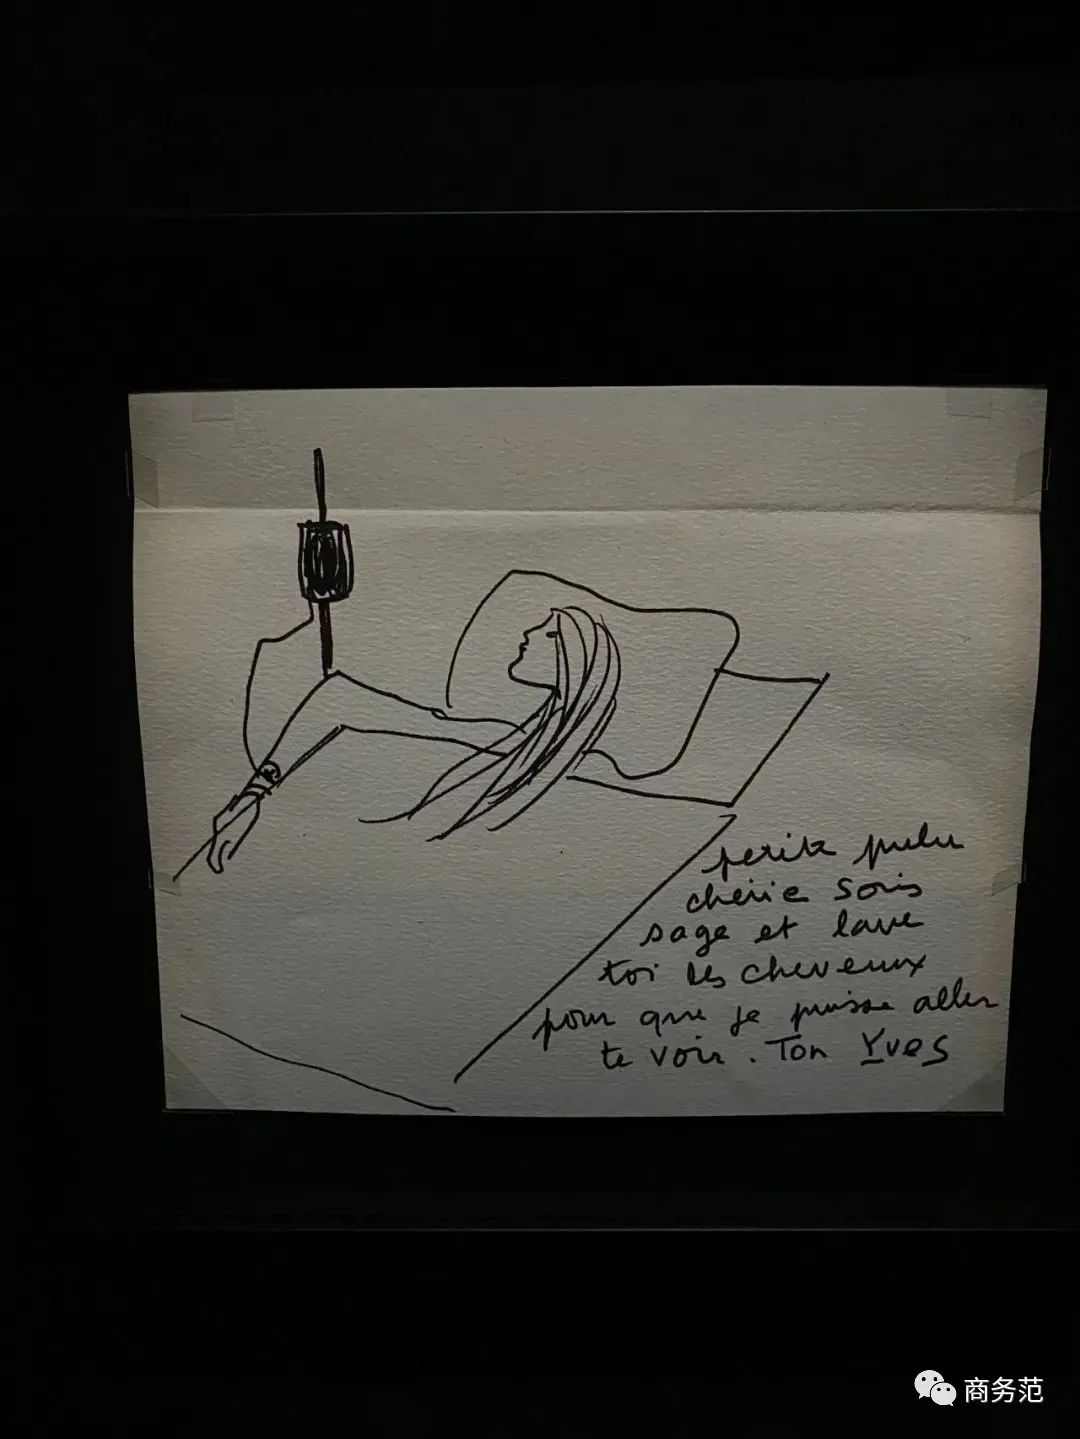 petite pulu
chérie sois
sage et lave
toi les cheveux
pour que je puisse aller
te voir. Ton Yves
商务范